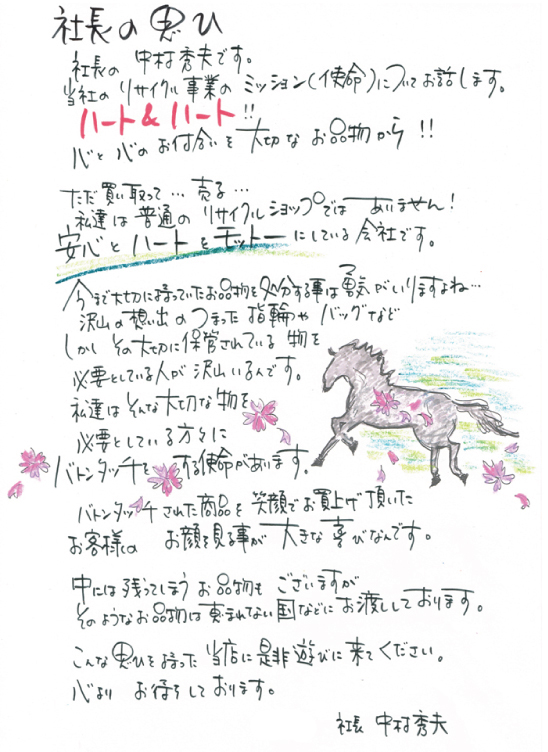 社長の思ひ
社長の 中村秀夫です。
当社の リサイクル事業の ミッション(使命)についてお話します。
ハート&ハート!!
心と心の お付合いを 大切な お品物から !!
ただ買い取って… 売る…
私達は 普通の リサイクルショップでは ありません!
安心と ハートをモットーにしている 会社です。
今まで大切に持っていたお品物を処分する事は勇気がいりますよね…
沢山の想い出のつまった 指輪や バッグなど
しかし その大切に保管されている 物を
必要としている人が沢山いるんです。
私達はそんな大切な物を
必要としている 方々に
バトンタッチを する使命があります。
バトンタッチされた商品を 笑顔でお買上げ頂いた
お客様の お顔を見る事が 大きな喜びなんです。
中には 残ってしまう お品物も ございますが
そのようなお品物は恵まれない国などにお渡ししております。
こんな思ひを持った 当店に是非 遊びに来てください。
心より お待ちしております。
社長 中村秀夫